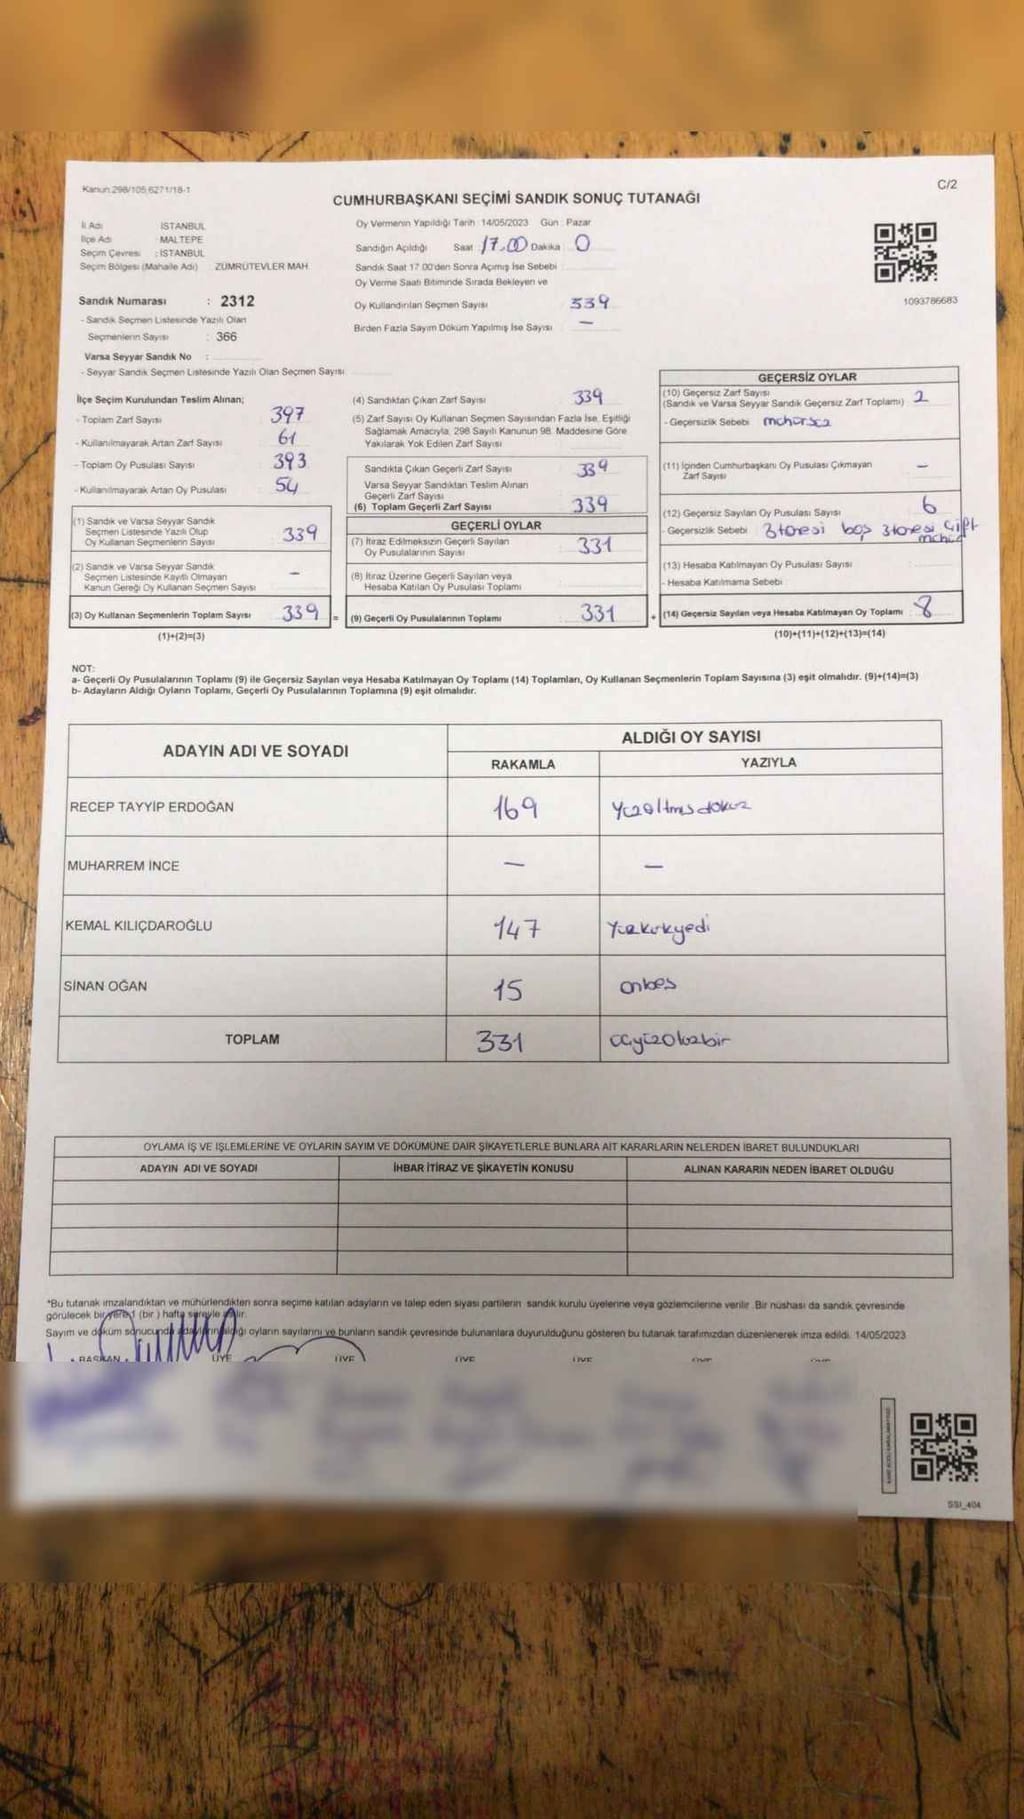 Kanun:298/105,6271/18-1
C/2
CUMHURBAŞKANI SEÇİMİ SANDIK SONUÇ TUTANAĞI
İl Adı : İSTANBUL
İlçe Adı : MALTEPE
Seçim Çevresi : İSTANBUL
Seçim Bölgesi (Mahalle Adı) ZÜMRÜTEVLER MAH.
Oy Vermenin Yapıldığı Tarih : 14/05/2023 Gün : Pazar
Sandığın Açıldığı Saat 17.00 Dakika 0
Sandık Saat 17.00'den Sonra Açımış İse Sebebi
Oy Verme Saati Bitiminde Sırada Bekleyen ve
Oy Kullandırılan Seçmen Sayısı 339
Birden Fazla Sayım Döküm Yapılmış İse Sayısı —
1093786683
Sandık Numarası : 2312
- Sandık Seçmen Listesinde Yazılı Olan
Seçmenlerin Sayısı : 366
Varsa Seyyar Sandık No :
- Seyyar Sandık Seçmen Listesinde Yazılı Olan Seçmen Sayısı
İlçe Seçim Kurulundan Teslim Alınan;
- Toplam Zarf Sayısı 397
- Kullanılmayarak Artan Zarf Sayısı 61
- Toplam Oy Pusulası Sayısı 393
- Kullanılmayarak Artan Oy Pusulası 54
(1) Sandık ve Varsa Seyyar Sandık
Seçmen Listesinde Yazılı Olup
Oy Kullanan Seçmenlerin Sayısı 339
(2) Sandık ve Varsa Seyyar Sandık
Seçmen Listesinde Kayıtlı Olmayan
Kanun Gereği Oy Kullanan Seçmen Sayısı –
(3) Oy Kullanan Seçmenlerin Toplam Sayısı 339 =
(1)+(2)=(3)
(4) Sandıktan Çıkan Zarf Sayısı 339
(5) Zarf Sayısı Oy Kullanan Seçmen Sayısından Fazla İse, Eşitliği
Sağlamak Amacıyla, 298 Sayılı Kanunun 98. Maddesine Göre
Yakılarak Yok Edilen Zarf Sayısı
Sandıkta Çıkan Geçerli Zarf Sayısı 339
Varsa Seyyar Sandıktan Teslim Alınan
Geçerli Zarf Sayısı
(6) Toplam Geçerli Zarf Sayısı 339
GEÇERLİ OYLAR
(7) İtiraz Edilmeksizin Geçerli Sayılan
Oy Pusulalarının Sayısı 331
(8) İtiraz Üzerine Geçerli Sayılan veya
Hesaba Katılan Oy Pusulası Toplamı
(9) Geçerli Oy Pusulalarının Toplamı 331 +
GEÇERSİZ OYLAR
(10) Geçersiz Zarf Sayısı
(Sandık ve Varsa Seyyar Sandık Geçersiz Zarf Toplamı) 2
- Geçersizlik Sebebi
(11) İçinden Cumhurbaşkanı Oy Pusulası Çıkmayan
Zarf Sayısı –
(12) Geçersiz Sayılan Oy Pusulası Sayısı 6
- Geçersizlik Sebebi 3 tanesi boş 3 tanesi çift
(13) Hesaba Katılmayan Oy Pusulası Sayısı
- Hesaba Katılmama Sebebi
(14) Geçersiz Sayılan veya Hesaba Katılmayan Oy Toplamı 8
(10)+(11)+(12)+(13)=(14)
NOT:
a- Geçerli Oy Pusulalarının Toplamı (9) ile Geçersiz Sayılan veya Hesaba Katılmayan Oy Toplamı (14) Toplamları, Oy Kullanan Seçmenlerin Toplam Sayısına (3) eşit olmalıdır. (9)+(14)=(3)
b- Adayların Aldığı Oyların Toplamı, Geçerli Oy Pusulalarının Toplamına (9) eşit olmalıdır.
ADAYIN ADI VE SOYADI
ALDIĞI OY SAYISI
RAKAMLA YAZIYLA
RECEP TAYYİP ERDOĞAN 169 Yüzaltmışdokuz
MUHARREM İNCE — —
KEMAL KILIÇDAROĞLU 147 Yüzkırkyedi
SİNAN OĞAN 15 onbeş
TOPLAM 331 üçyüzotuzbir
OYLAMA İŞ VE İŞLEMLERİNE VE OYLARIN SAYIM VE DÖKÜMÜNE DAİR ŞİKAYETLERLE BUNLARA AİT KARARLARIN NELERDEN İBARET BULUNDUKLARI
ADAYIN ADI VE SOYADI İHBAR İTİRAZ VE ŞİKAYETİN KONUSU ALINAN KARARIN NEDEN İBARET OLDUĞU
*Bu tutanak imzalandıktan ve mühürlendikten sonra seçime katılan adayların ve talep eden siyasi partilerin sandık kurulu üyelerine veya gözlemcilerine verilir. Bir nüshası da sandık çevresinde
görülecek bir yere 1 (bir) hafta süreyle asılır.
Sayım ve döküm sonucunda adayların aldığı oyların sayılarını ve bunların sandık çevresinde bulunanlara duyurulduğunu gösteren bu tutanak tarafımızdan düzenlenerek imza edildi. 14/05/2023
BAŞKAN ÜYE ÜYE ÜYE ÜYE
SSI_404